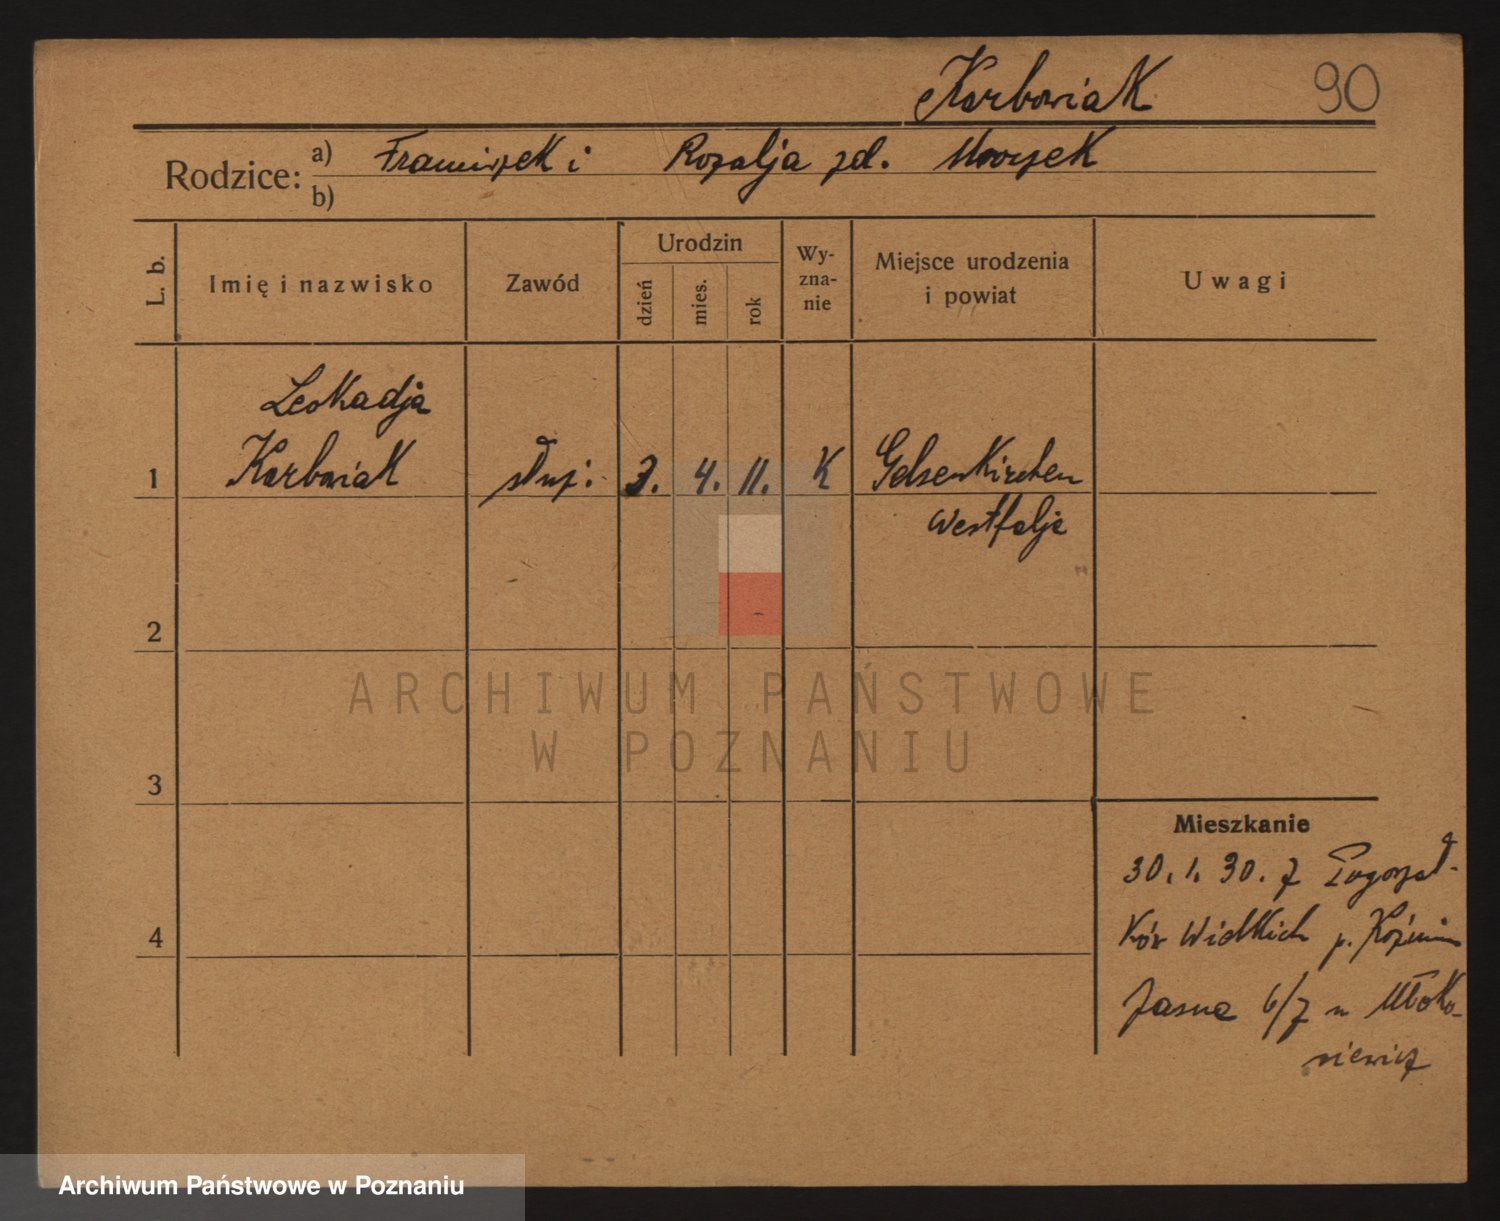 Karbowiak
90
Rodzice: a) Franciszek i Rozalja zd.
b)
L. b.
Imię i nazwisko
Zawód
Urodzin
dzień
mies.
rok
Wy-
zna-
nie
Miejsce urodzenia
i powiat
Uwagi
Leokadja
1 Karbowiak służ: 3. 4. 11. K Gelsenkirchen
Westfalja
2
3
4
Mieszkanie
30. 1. 30. z Pogorzał-
ków Wielkich p. Koźmin
Jasna 6/7 u Młoko-
siewicz
ARCHIWUM PAŃSTWOWE
W POZNANIU
Archiwum Państwowe w Poznaniu